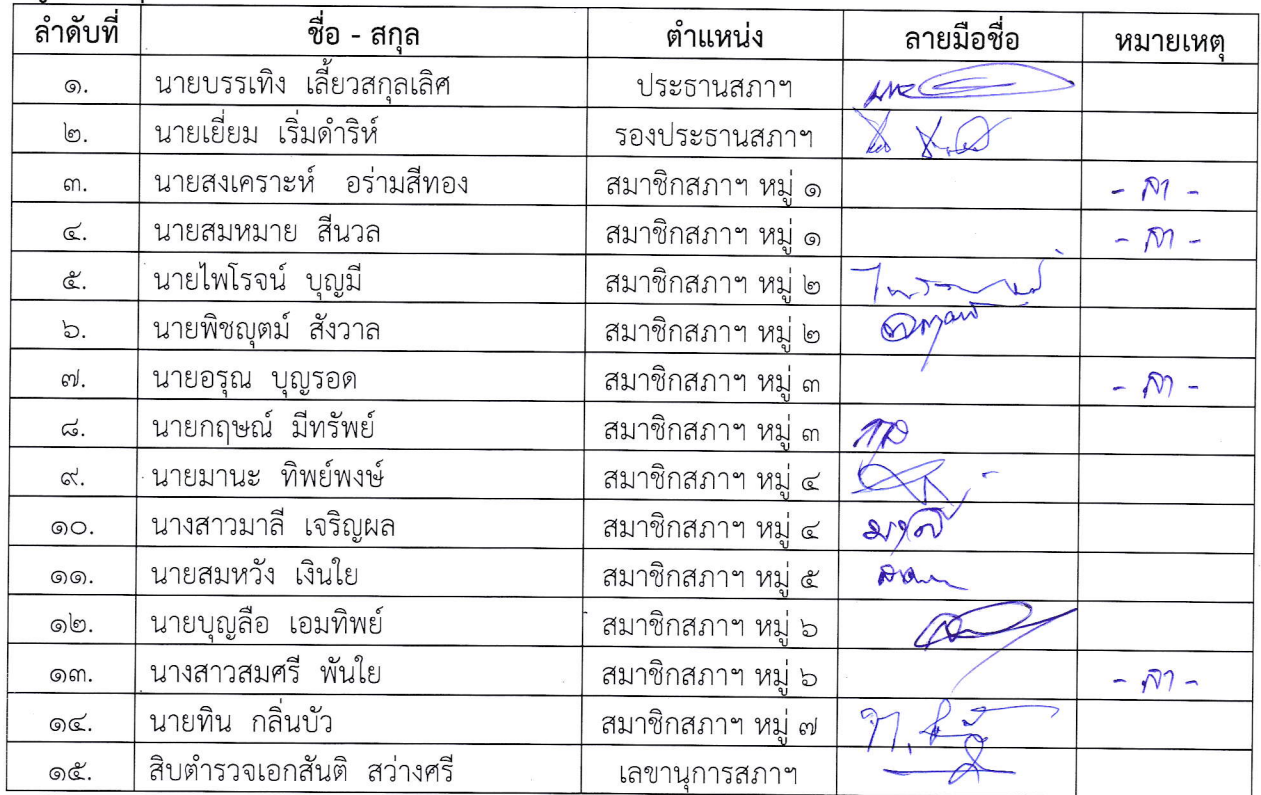 ลำดับที่ ชื่อ - สกุล ตำแหน่ง ลายมือชื่อ หมายเหตุ
๑. นายบรรเทิง เลี้ยวสกุลเลิศ ประธานสภาฯ
๒. นายเยี่ยม เริ่มดำริห์ รองประธานสภาฯ
๓. นายสงเคราะห์ อร่ามสีทอง สมาชิกสภาฯ หมู่ ๑ - ลา -
๔. นายสมหมาย สีนวล สมาชิกสภาฯ หมู่ ๑ - ลา -
๕. นายไพโรจน์ บุญมี สมาชิกสภาฯ หมู่ ๒
๖. นายพิชญตม์ สังวาล สมาชิกสภาฯ หมู่ ๒
๗. นายอรุณ บุญรอด สมาชิกสภาฯ หมู่ ๓ - ลา -
๘. นายกฤษณ์ มีทรัพย์ สมาชิกสภาฯ หมู่ ๓
๙. นายมานะ ทิพย์พงษ์ สมาชิกสภาฯ หมู่ ๔
๑๐. นางสาวมาลี เจริญผล สมาชิกสภาฯ หมู่ ๔ มาลี
๑๑. นายสมหวัง เงินใย สมาชิกสภาฯ หมู่ ๕
๑๒. นายบุญลือ เอมทิพย์ สมาชิกสภาฯ หมู่ ๖
๑๓. นางสาวสมศรี พันใย สมาชิกสภาฯ หมู่ ๖ - ลา -
๑๔. นายทิน กลิ่นบัว สมาชิกสภาฯ หมู่ ๗
๑๕. สิบตำรวจเอกสันติ สว่างศรี เลขานุการสภาฯ